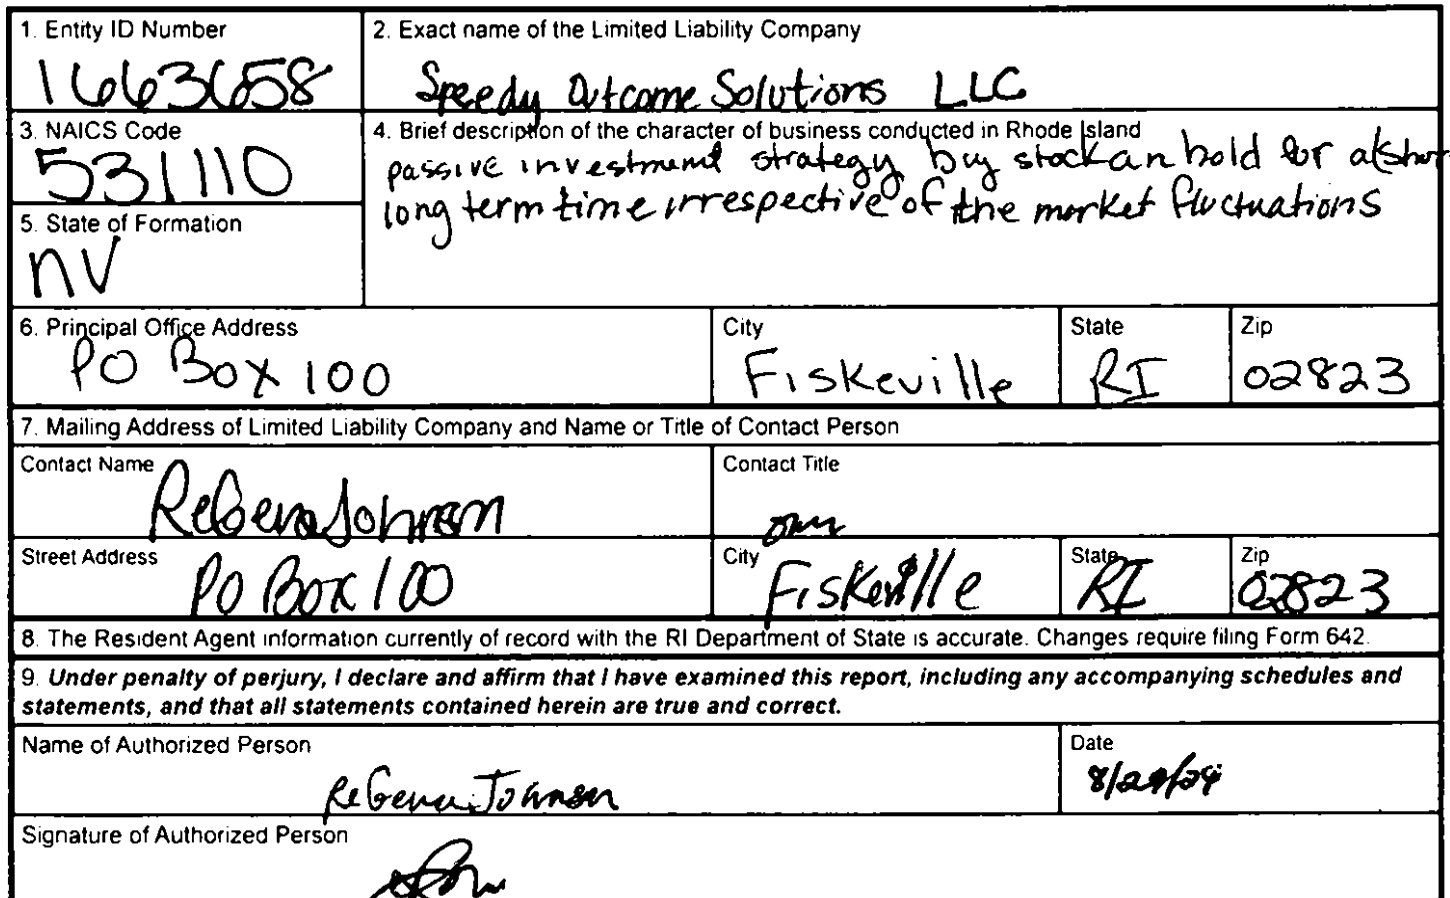 1. Entity ID Number
1663658
2. Exact name of the Limited Liability Company
Speedy Outcome Solutions LLC
3. NAICS Code
531110
4. Brief description of the character of business conducted in Rhode Island
passive investment strategy buy stock an hold for a short
long term time irrespective of the market fluctuations
5. State of Formation
NV
6. Principal Office Address
PO Box 100
City
Fiskeville
State
RI
Zip
02823
7. Mailing Address of Limited Liability Company and Name or Title of Contact Person
Contact Name
ReGena Johnson
Contact Title
Street Address
PO Box 100
City
Fiskeville
State
RI
Zip
02823
8. The Resident Agent information currently of record with the RI Department of State is accurate. Changes require filing Form 642.
9. Under penalty of perjury, I declare and affirm that I have examined this report, including any accompanying schedules and
statements, and that all statements contained herein are true and correct.
Name of Authorized Person
ReGena Johnson
Date
Signature of Authorized Person